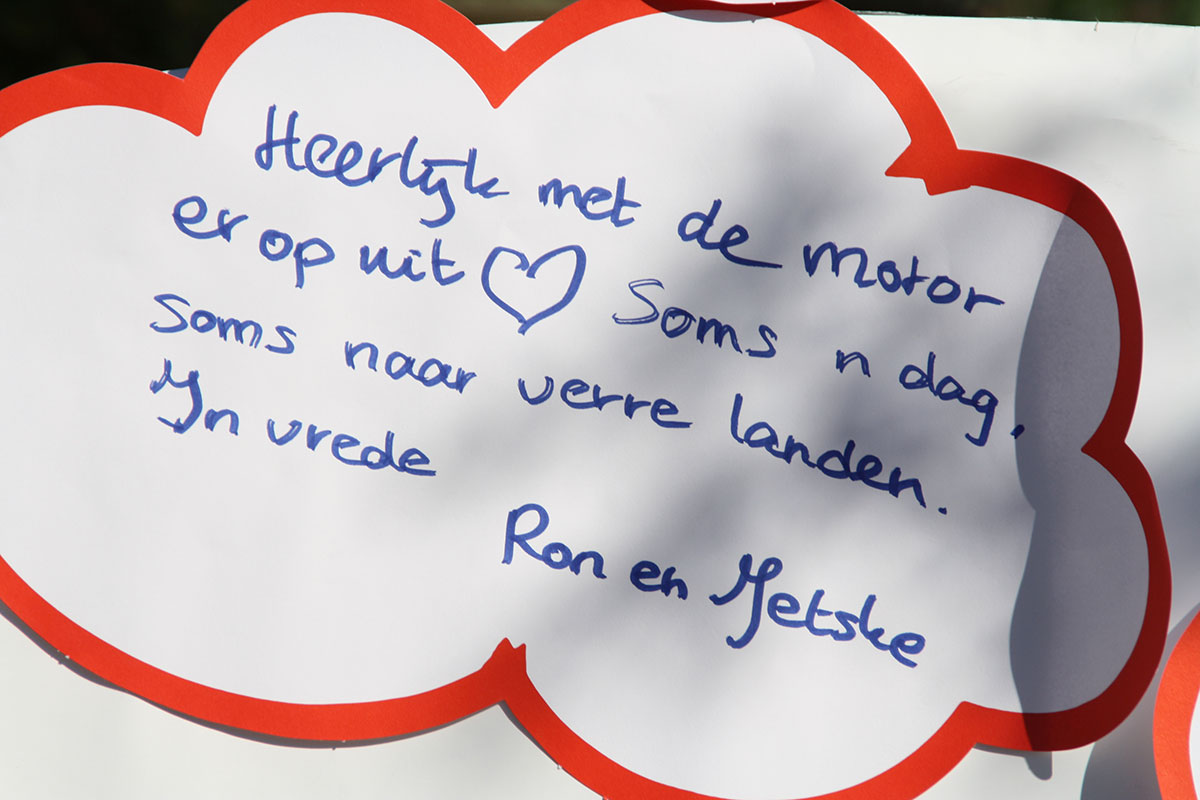 Heerlijk met de motor
er op uit ♡ Soms n dag,
soms naar verre landen.
In vrede
Ron en Jetske